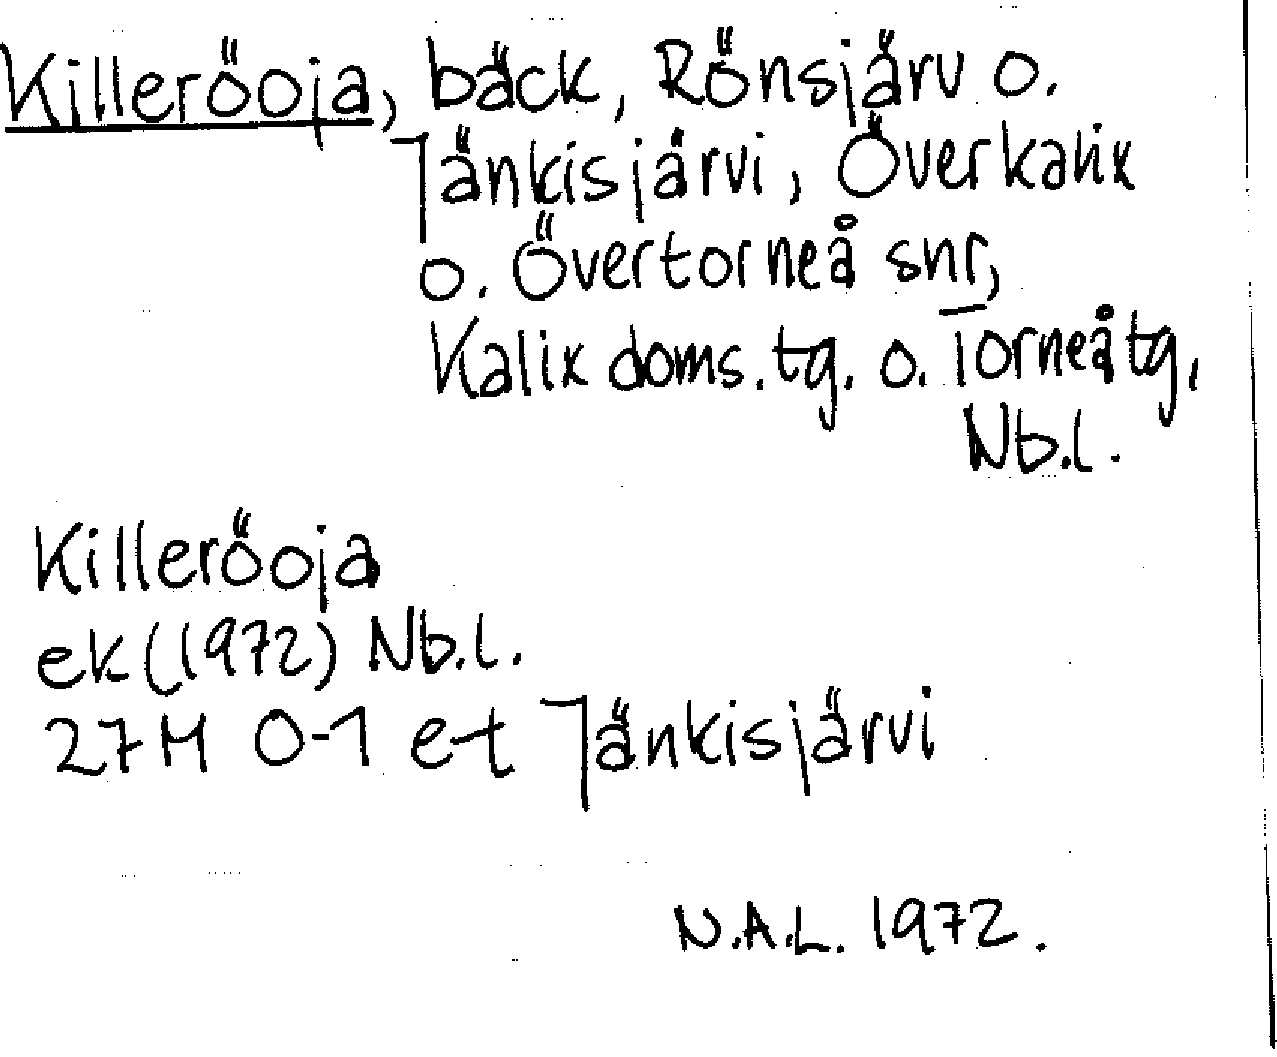 Killeröoja, bäck, Rönsjärv o.
Jänkisjärvi, Överkalix
o. Övertorneå snr,
Kalix doms.tg. o. Torneå tg,
Nb.l.
Killeröoja
ek (1972) Nb.l.
27M 0-1 e-t Jänkisjärvi
N.A.L. 1972.